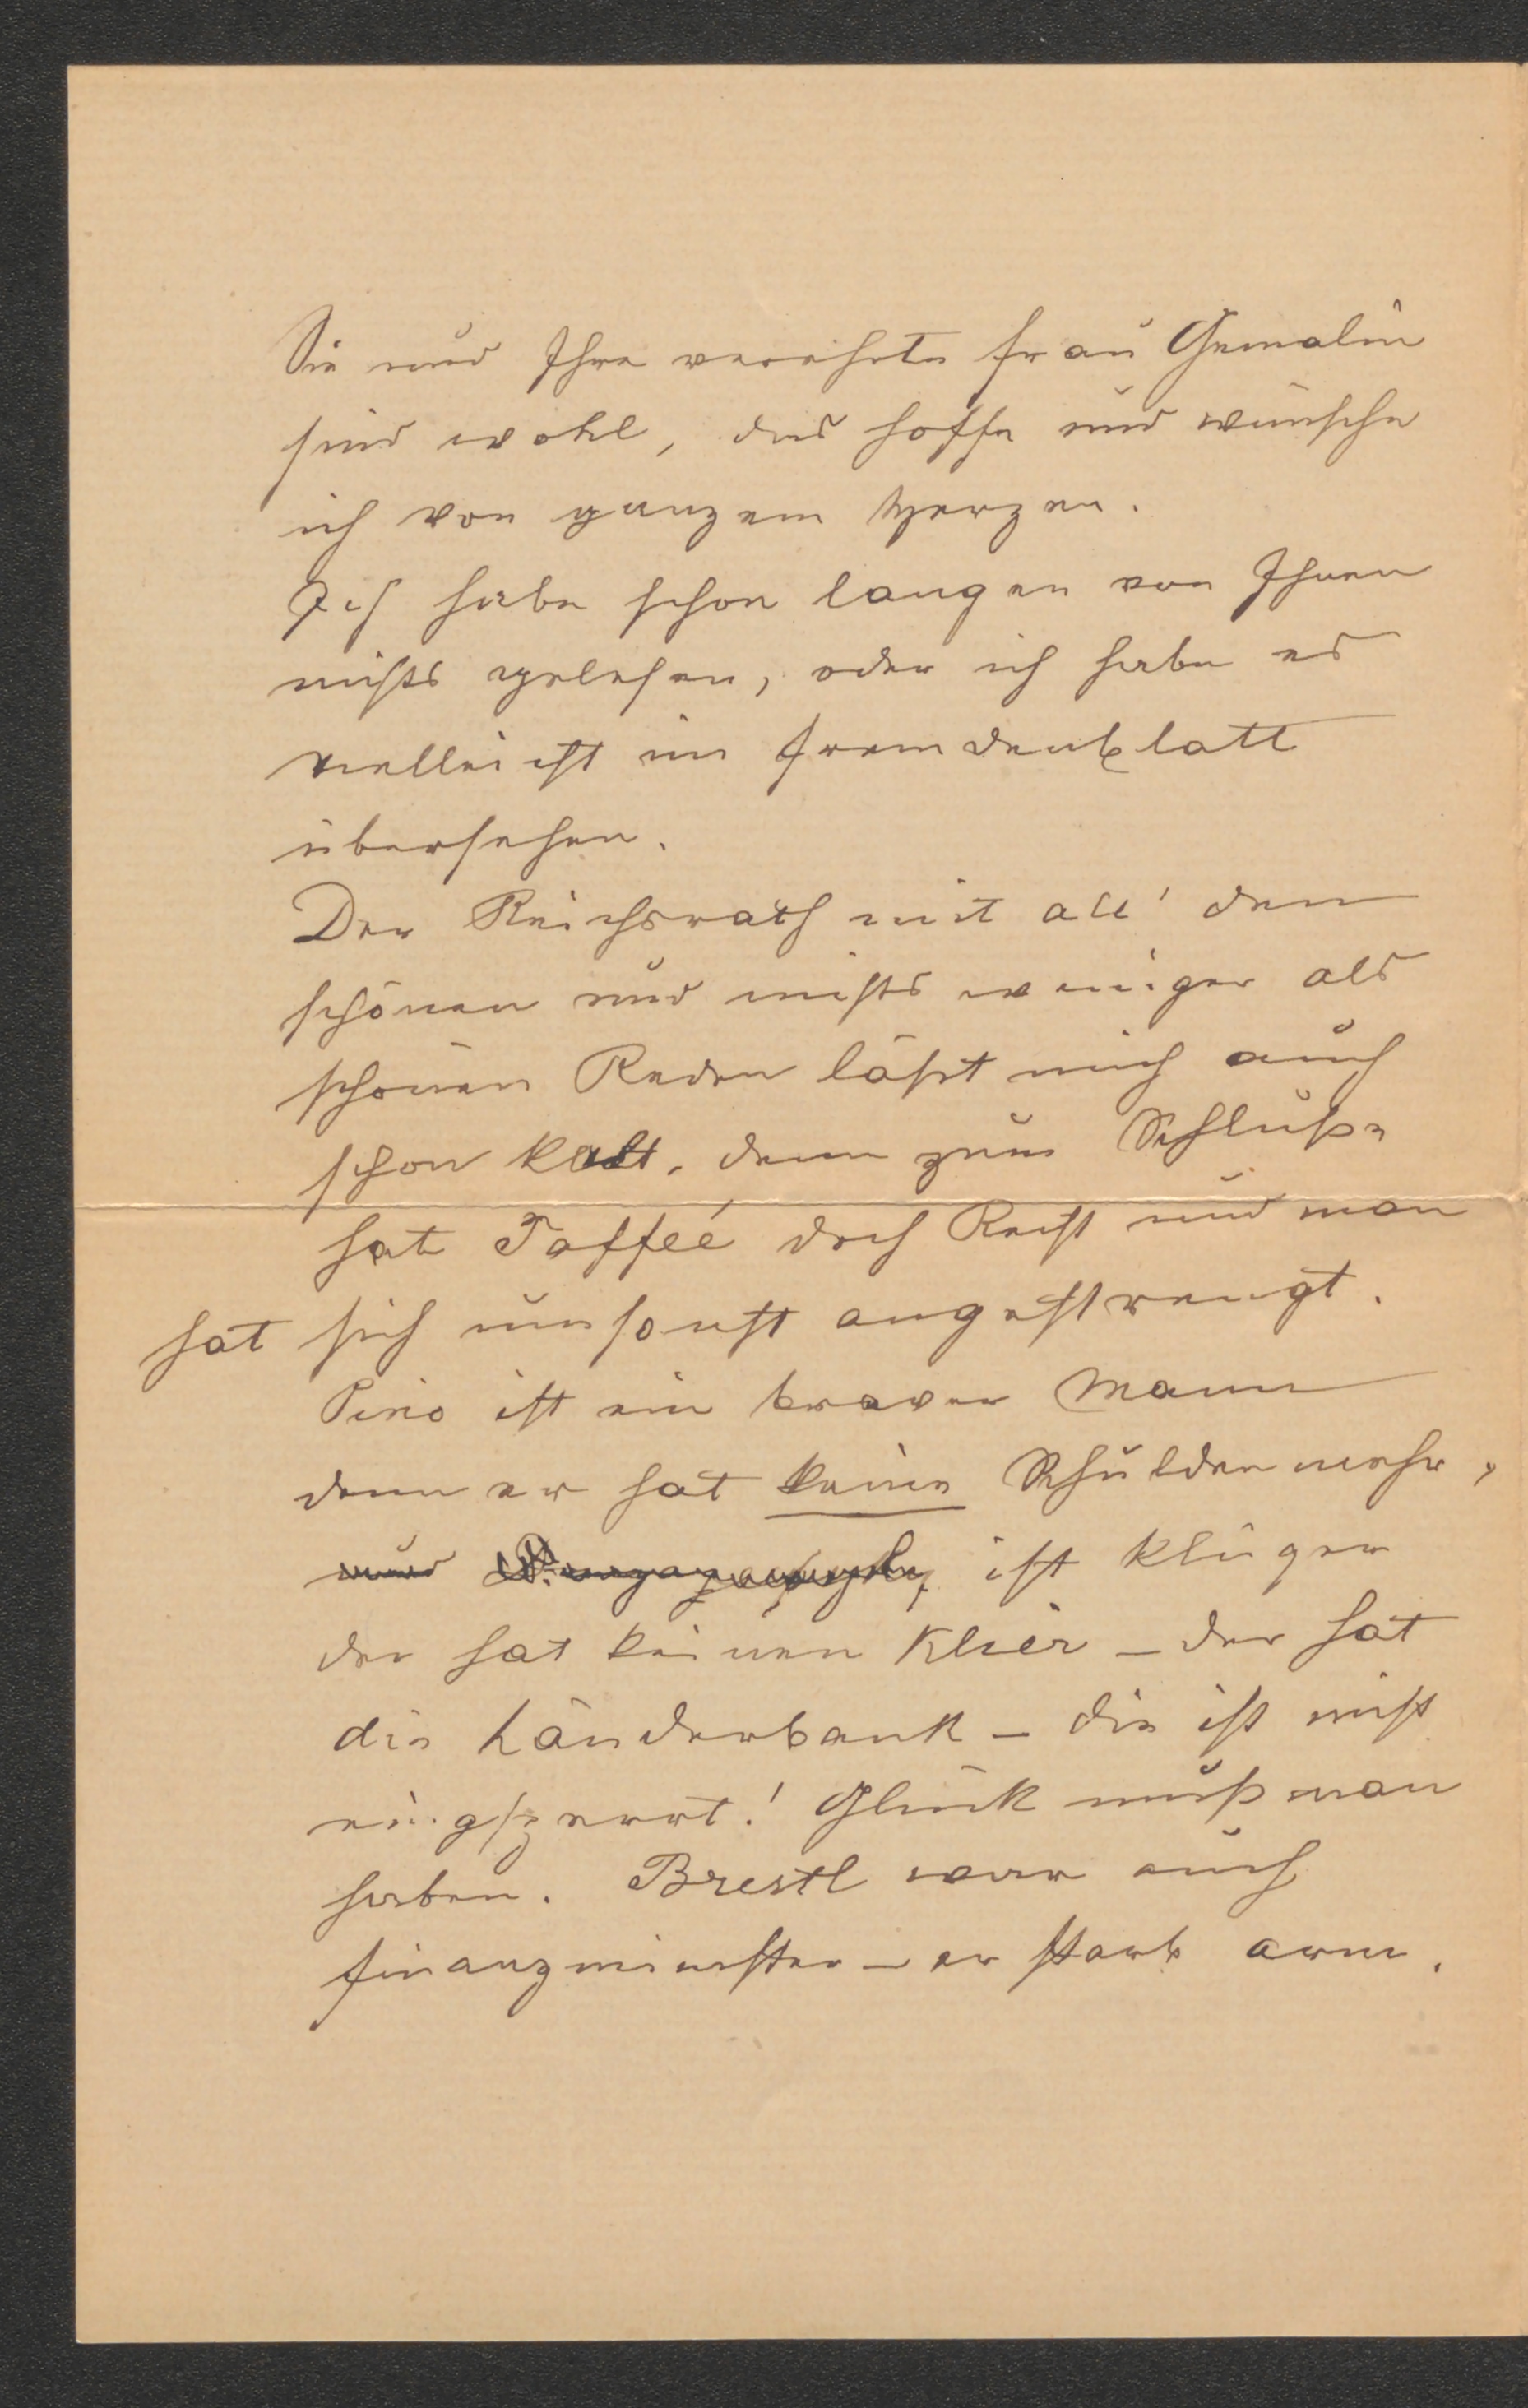 Sie und Ihre verehrte Frau Gemalin
sind wohl, das hoffe und wünsche
ich von ganzem Herzen.
Ich habe schon langen von Ihnen
nichts gelesen, oder ich habe es
vielleicht im Fremdenblatt
übersehen.
Der Reichsrath mit all' den
schönen und nichts weniger als
schönen Reden läßt mich auch
schon kalt, denn zum Schluße
hat Taffeé doch Recht und man
hat sich umsonst angestrengt.
Pino ist ein braver Mann
denn er hat keine Schulden mehr,
und ist klüger
der hat keinen Klier – der hat
die Länderbank – die ist nicht
eingsperrt! Glück muß man
haben. Brestl war auch
Finanzminister – er starb arm.